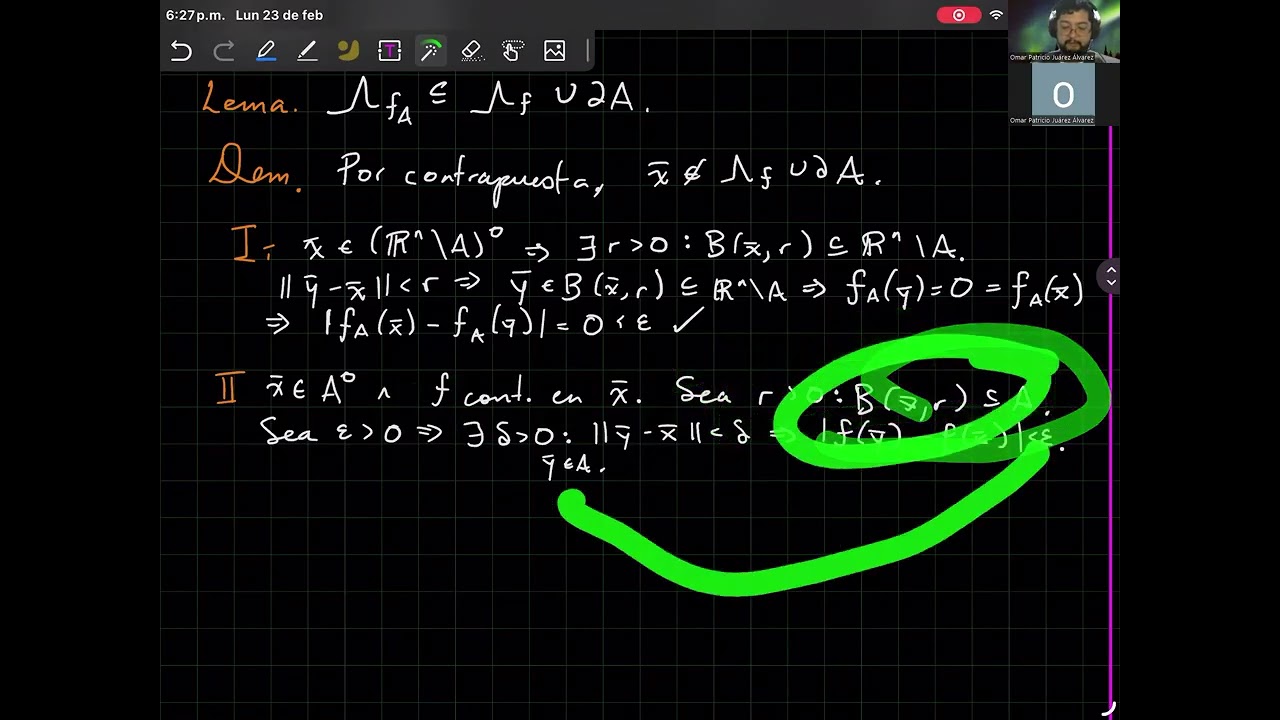 6:27 p.m. Lun 23 de feb
Omar Patricio Juárez Álvarez
O
Omar Patricio Juárez Álvarez
T
Lema. Λ_{f_A} ⊆ Λ_f ∪ ∂A.
Dem. Por contrapuesta, x̄ ∉ Λ_f ∪ ∂A.
I: x̄ ∈ (ℝⁿ \ A)⁰ ⇒ ∃ r > 0 : B(x̄, r) ⊆ ℝⁿ \ A.
‖ȳ - x̄‖ < r ⇒ ȳ ∈ B(x̄, r) ⊆ ℝⁿ \ A ⇒ f_A(ȳ) = 0 = f_A(x̄)
⇒ |f_A(x̄) - f_A(ȳ)| = 0 < ε ✓
II x̄ ∈ A⁰ ∧ f cont. en x̄. Sea r > 0 : B(x̄, r) ⊆ A.
Sea ε > 0 ⇒ ∃ δ > 0 : ‖ȳ - x̄‖ < δ ⇒ |f(ȳ) - f(x̄)| < ε.
ȳ ∈ A.